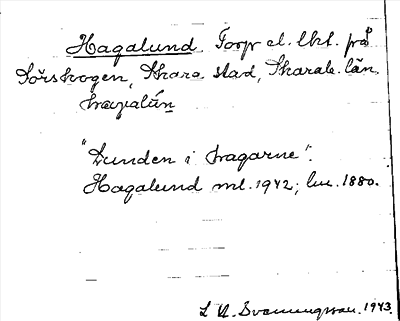 Hagalund. Torp el. lht. på
Dörskogen, Skara stad, Skarab. län.
hagalún
"Lunden i hagarne".
Hagalund ml. 1942; lm. 1880.
1943.